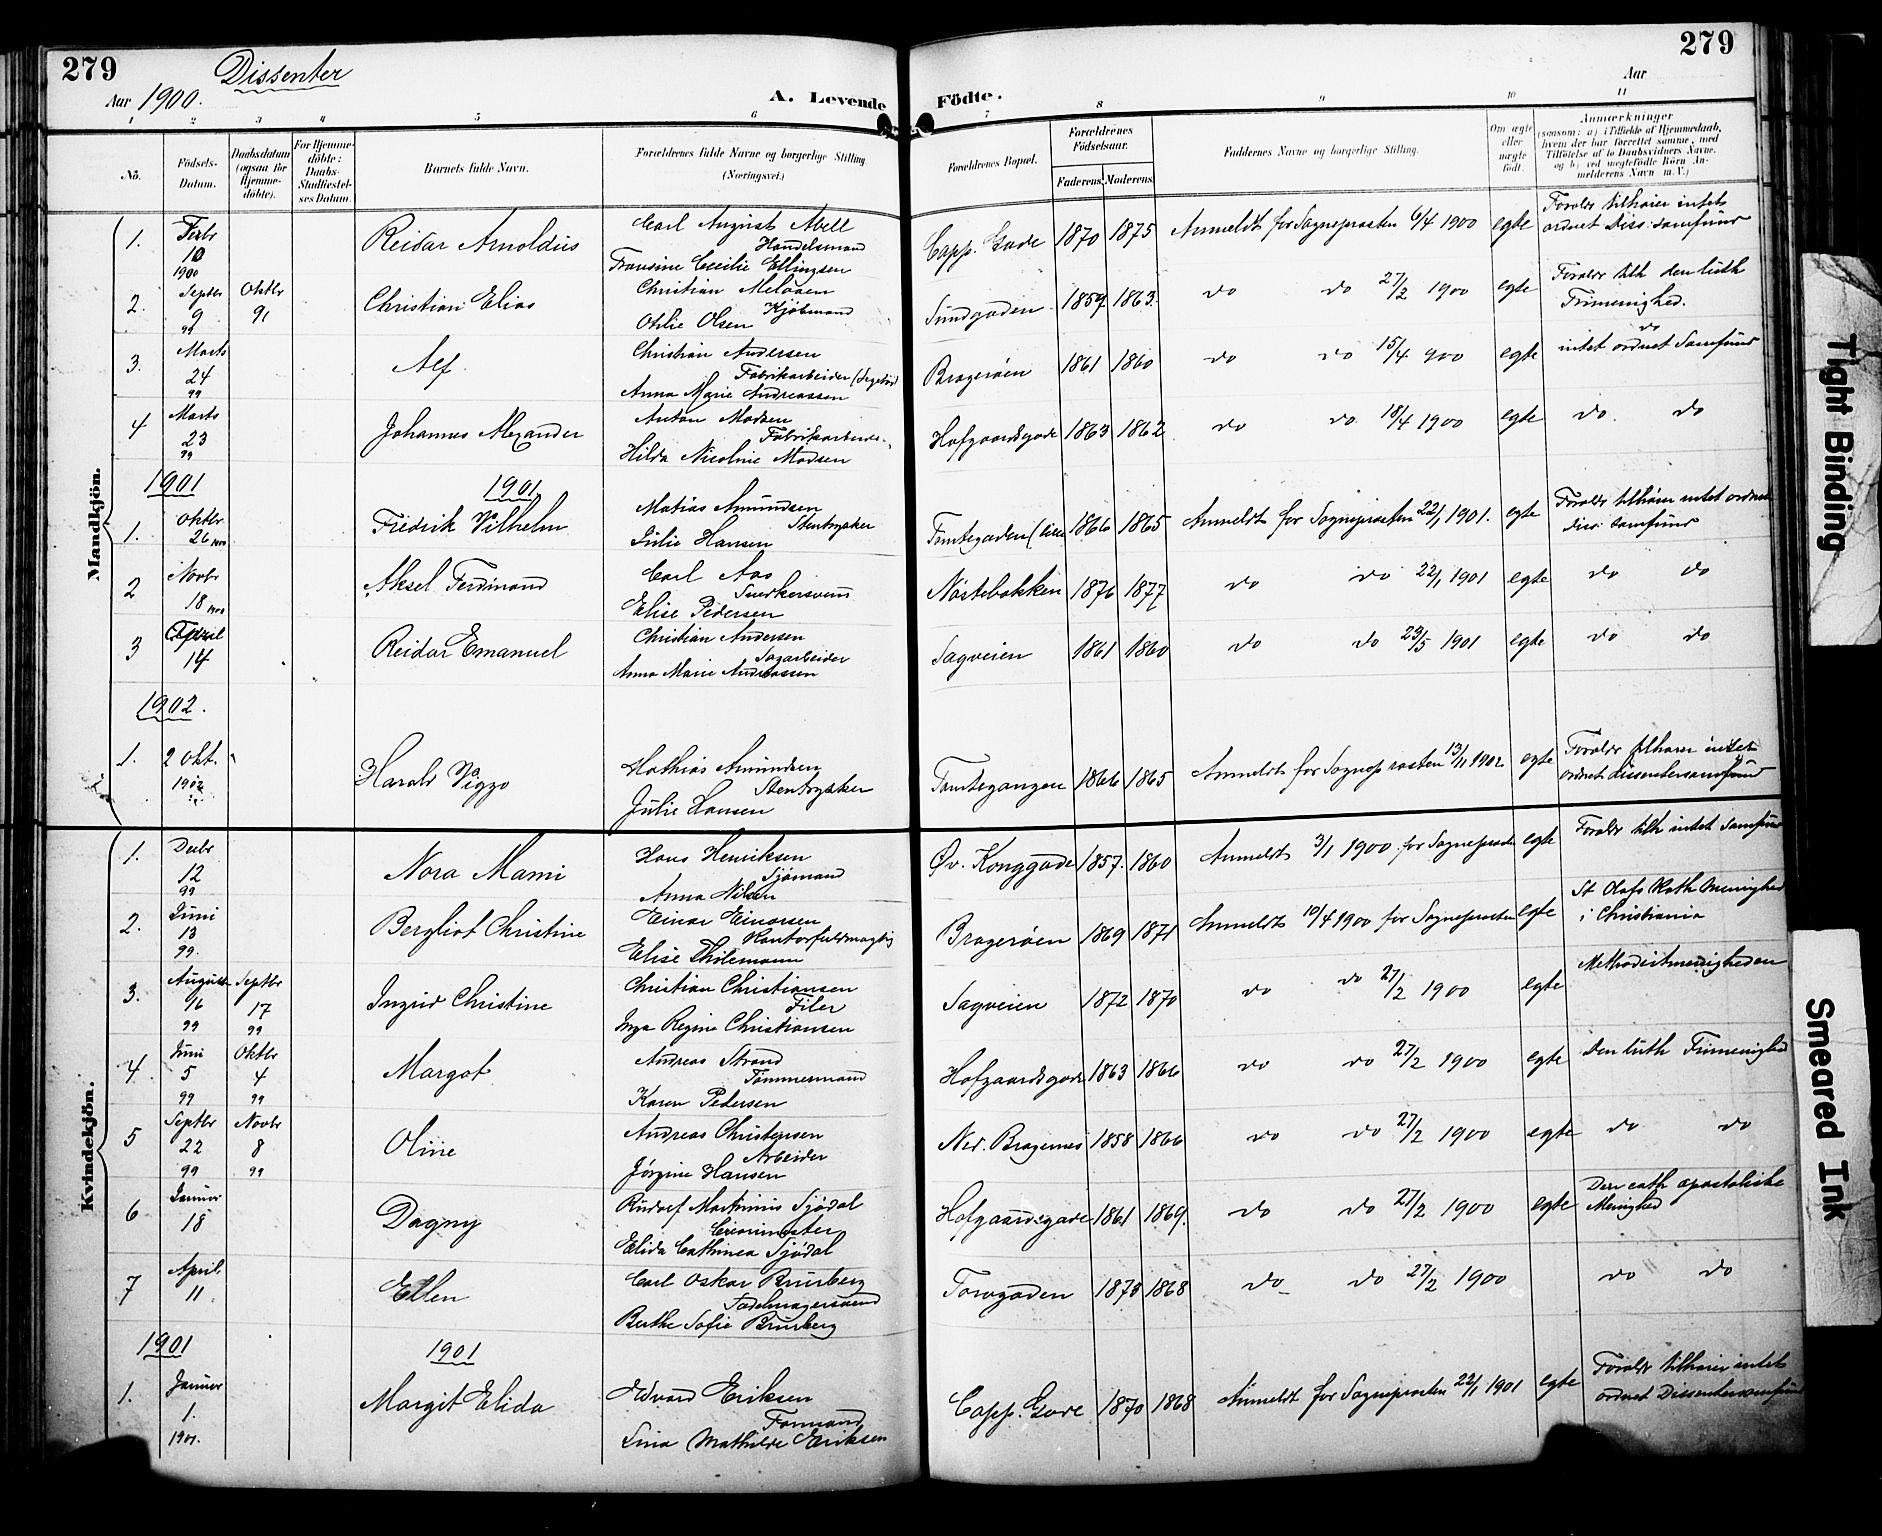 279
Dissenter
Aar 1900.
A. Levende
Födte.
279
Aar
1 2 3 4 5 6 7 8 9 10 11
No.
Födsels-Datum.
Daabsdatum (ogsaa for Hjemme-döbte).
For Hjemme-döbte: Daabs-Stadfæstel-ses Datum.
Barnets fulde Navn.
Forældrenes fulde Navne og borgerlige Stilling (Næringsvei.)
Forældrenes Bopæl.
Forældrenes Födselsaar.
Faderens. Moderens.
Faddernes Navne og borgerlige Stilling.
Om ægte eller uægte födt.
Anmærkninger
(saasom: a) i Tilfælde af Hjemmedaab, hvem der har forrettet samme, med Tilföielse af to Daabsvidners Navne, og b) ved uægtefödte Börn An-melderens Navn m. V.)
Mandkjön.
1. Febr 10 1900 Reidar Arnoldus Carl August Abell Handelsmand Fransine Cecilie Ellingsen Capp. Gade 1870 1875 Anmeldt for Sogneprasten 6/4 1900 egte Foraldr tilhører intet ordnet Diss: samfund
2. Septbr 9 99 Oktbr 9, Christian Elias Christian Meløen Kjøbmand Othilie Olsen Sundgaden 1859 1863. do do 27/2 1900 egte Foraldr tilh den luth Frimenighed.
3. Marts 24 99 Alf Christian Andersen Fabrikarbeider Anna Marie Andreassen Bragerøen 1861 1860 do do 15/4 900 egte do intet ordnet Samfund
4 Marts 23 99 Johannes Alexander Anton Madsen Fabrikarbeider Hilda Nicoline Madsen Hofgaardsgade 1863 1862 do do 18/4 1900 egte do. do
1901 1901
1. Oktbr 26 1900 Fredrik Vilhelm Matias Amundsen Stentrykker Julie Hansen Tomtegaden 1866 1865 Anmeldt for Sogneprasten 22/1 1901. egte Foraldr tilhører intet ordnet diss: samfund
2 Novbr 18 1900 Aksel Ferdinand Carl Aas Snerkersvend Elise Pedersen Nøstebakken 1876 1877 do do 22/1 1901 egte do do
3 April 14 Reidar Emanuel Christian Andersen Sagarbeider Anna Marie Andreassen Sagveien 1861 1860 do do 23/5 1901 egte do do
1902.
1. 2 Okt. 1902 Harald Viggo Mathias Amundsen Stentrykker Julie Hansen Tomtegangen 1866 1865 Anmeldt for Sogneprasten 13/11 1902 egte Foraldr tilhører intet ordnet dissentersamfund
Kvindekjön.
1. Decbr 12 99 Nora Mami Hans Henriksen Sjømand Anna Nilsen Øv. Konggade 1857. 1860 Anmeldt 3/1 1900 for Sogneprasten egte Foraldr tilh intet samfund
2. Juni 13 99. Bergliot Christine Einar Einarsen Kontorfuldmægtig Elise Thilemann Bragerøen 1869 1871 Anmeldt 10/4 1900 for Sogneprasten egte St Olafs Kath Menighed i Christiania
3. August 6 99 Septbr 17 99 Ingrid Christine Christian Christiansen Filer Inga Regine Christiansen Sagveien 1872 1870 do do 27/2 1900 egte Methodistmenigheden
4 Juni 5 99 Oktbr 4 99 Margot Andreas Strand Tømmermand Karen Pedersen Hofgaardsgade 1863 1866 do do 27/2 1900 egte Den luth Frimenighed
5 Septbr 22 99 Novbr 8 99 Oline Andreas Christensen Arbeider Jørgine Hansen Ned. Bragernes 1858 1866 do do 27/2 1900 egte do do
6 Januar 18 Dagny Rudolf Martinius Sjødal Elida Cathinca Sjødal Hofgaardsgade 1861 1869. do do 27/2 1900 egte Den cath apostoliske Menighed
7 April 11 Ellen Carl Oskar Brurberg Sadelmagersvend Berthe Sofie Brurberg Torvgaden 1873 1868 do do 27/2 1900 do do
1901 1901
1. Januar 1. 1901. Margit Elida Edvard Eriksen Formand Lina Mathilde Eriksen Capp. Gade 1870 1868 Anmeldt for Sogneprasten 22/1 1901 egte Foraldr tilhører intet ordnet Dissentersamfund
Tight Binding
Smeared Ink